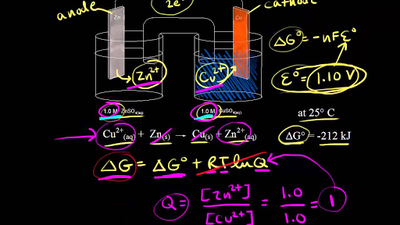 anode
2e⁻
cathode
Zn
Cu
ΔG° = -nFE°
Zn²⁺
Cu²⁺
E° = 1.10 V
1.0 M ZnSO₄(aq)
1.0 M CuSO₄(aq)
at 25° C
Cu²⁺(aq) + Zn(s) → Cu(s) + Zn²⁺(aq)
ΔG° = -212 kJ
ΔG = ΔG° + RT ln Q
Q = [Zn²⁺] / [Cu²⁺] = 1.0 / 1.0 = 1